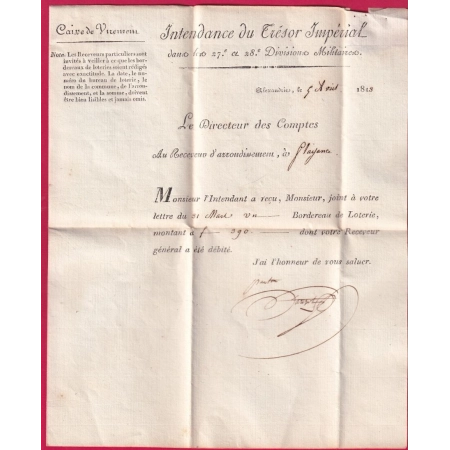 Caisse de Virement
Nota. Les Receveurs particuliers sont
invités à veiller à ce que les bor-
dereaux de loteries soient rédigés
avec exactitude. La date, le nu-
méro du bureau de loterie, le
nom de la commune, de l'arron-
dissement, et la somme, doivent
être bien lisibles et jamais omis.
Intendance du Trésor Impérial
dans les 27.e et 28.e Divisions Militaires.
Alexandrie, le 5 1813
Le Directeur des Comptes
Au Receveur d'arrondissement, à Plaisance
Monsieur l'Intendant a reçu, Monsieur, joint à votre
lettre du 31 un Bordereau de Loterie,
montant à f 390 dont votre Receveur
général a été débité.
J'ai l'honneur de vous saluer.